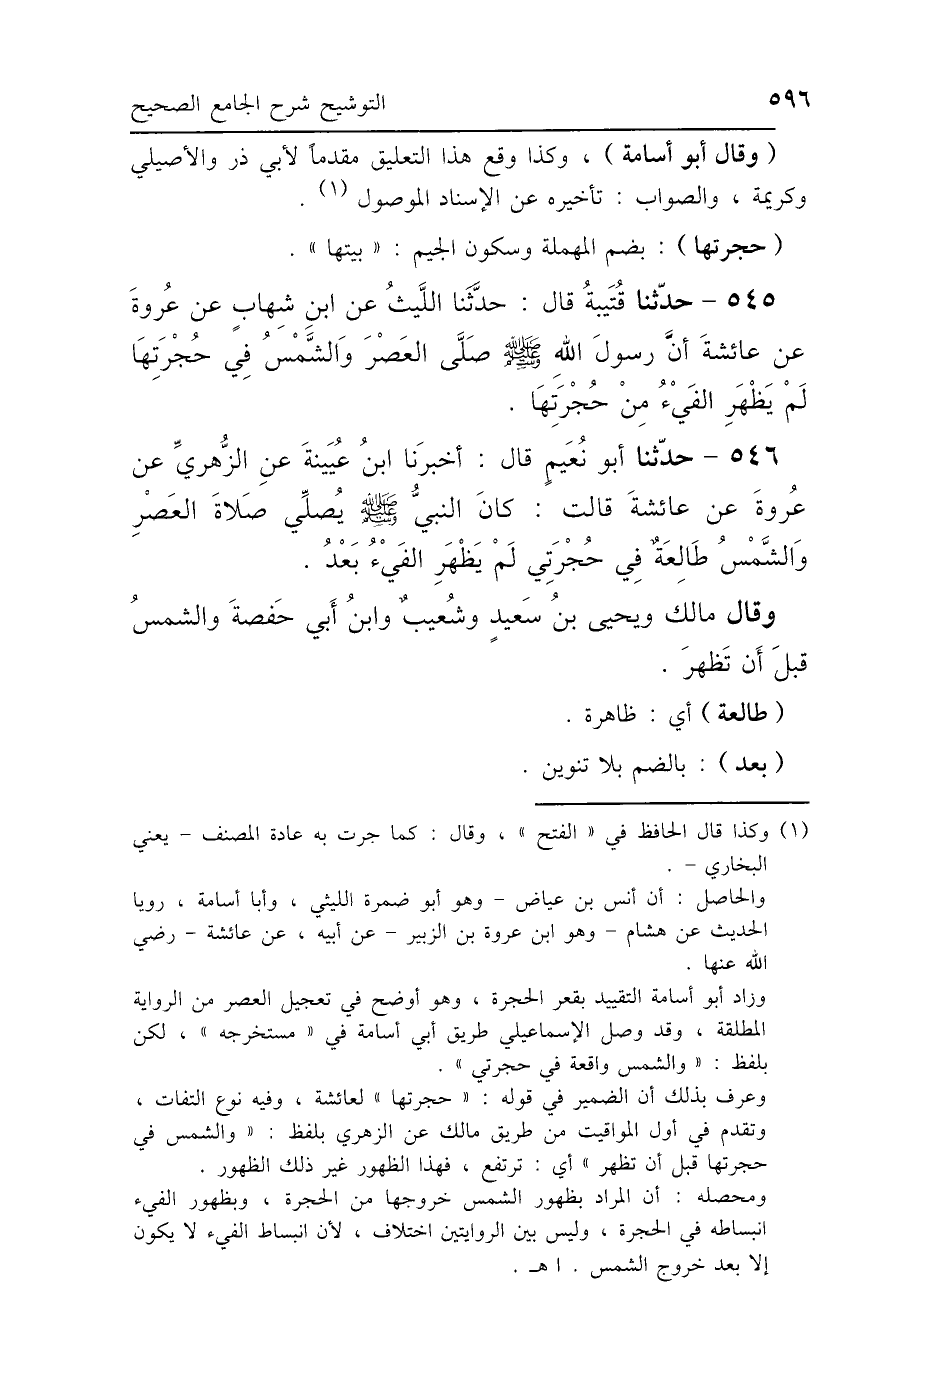 ٥٩٦ التوشيح شرح الجامع الصحيح
( وقال أبو أسامة ) ، وكذا وقع هذا التعليق مقدماً لأبي ذر والأصيلي
وكريمة ، والصواب : تأخيره عن الإسناد الموصول (١) .
( حجرتها ) : بضم المهملة وسكون الجيم : « بيتها » .
٥٤٥ - حدّثنا قُتَيبةُ قال : حدَّثَنا اللَّيثُ عن ابنِ شِهابٍ عن عُروةَ
عن عائشةَ أنَّ رسولَ الله ﷺ صَلَّى العَصْرَ وَالشَّمْسُ فِي حُجْرَتِهَا
لَمْ يَظْهَرِ الفَيْءُ مِنْ حُجْرَتِهَا .
٥٤٦ - حدّثنا أبو نُعَيمٍ قال : أخبرَنا ابنُ عُيَينةَ عنِ الزُّهريِّ عن
عُروةَ عن عائشةَ قالت : كانَ النبيُّ ﷺ يُصلِّي صَلاةَ العَصْرِ
وَالشَّمْسُ طَالِعَةٌ فِي حُجْرَتِي لَمْ يَظْهَرِ الفَيْءُ بَعْدُ .
وقال مالك ويحيى بنُ سَعيدٍ وشُعيبٌ وابنُ أَبي حَفصةَ والشمسُ
قبلَ أَن تَظهرَ .
( طالعة ) أي : ظاهرة .
( بعد ) : بالضم بلا تنوين .
(١) وكذا قال الحافظ في « الفتح » ، وقال : كما جرت به عادة المصنف - يعني
البخاري - .
والحاصل : أن أنس بن عياض - وهو أبو ضمرة الليثي ، وأبا أسامة ، رويا
الحديث عن هشام - وهو ابن عروة بن الزبير - عن أبيه ، عن عائشة - رضي
الله عنها .
وزاد أبو أسامة التقييد بقعر الحجرة ، وهو أوضح في تعجيل العصر من الرواية
المطلقة ، وقد وصل الإسماعيلي طريق أبي أسامة في « مستخرجه » ، لكن
بلفظ : « والشمس واقعة في حجرتي » .
وعرف بذلك أن الضمير في قوله : « حجرتها » لعائشة ، وفيه نوع التفات ،
وتقدم في أول المواقيت من طريق مالك عن الزهري بلفظ : « والشمس في
حجرتها قبل أن تظهر » أي : ترتفع ، فهذا الظهور غير ذلك الظهور .
ومحصله : أن المراد بظهور الشمس خروجها من الحجرة ، وبظهور الفيء
انبساطه في الحجرة ، وليس بين الروايتين اختلاف ، لأن انبساط الفيء لا يكون
إلا بعد خروج الشمس . ا هـ .